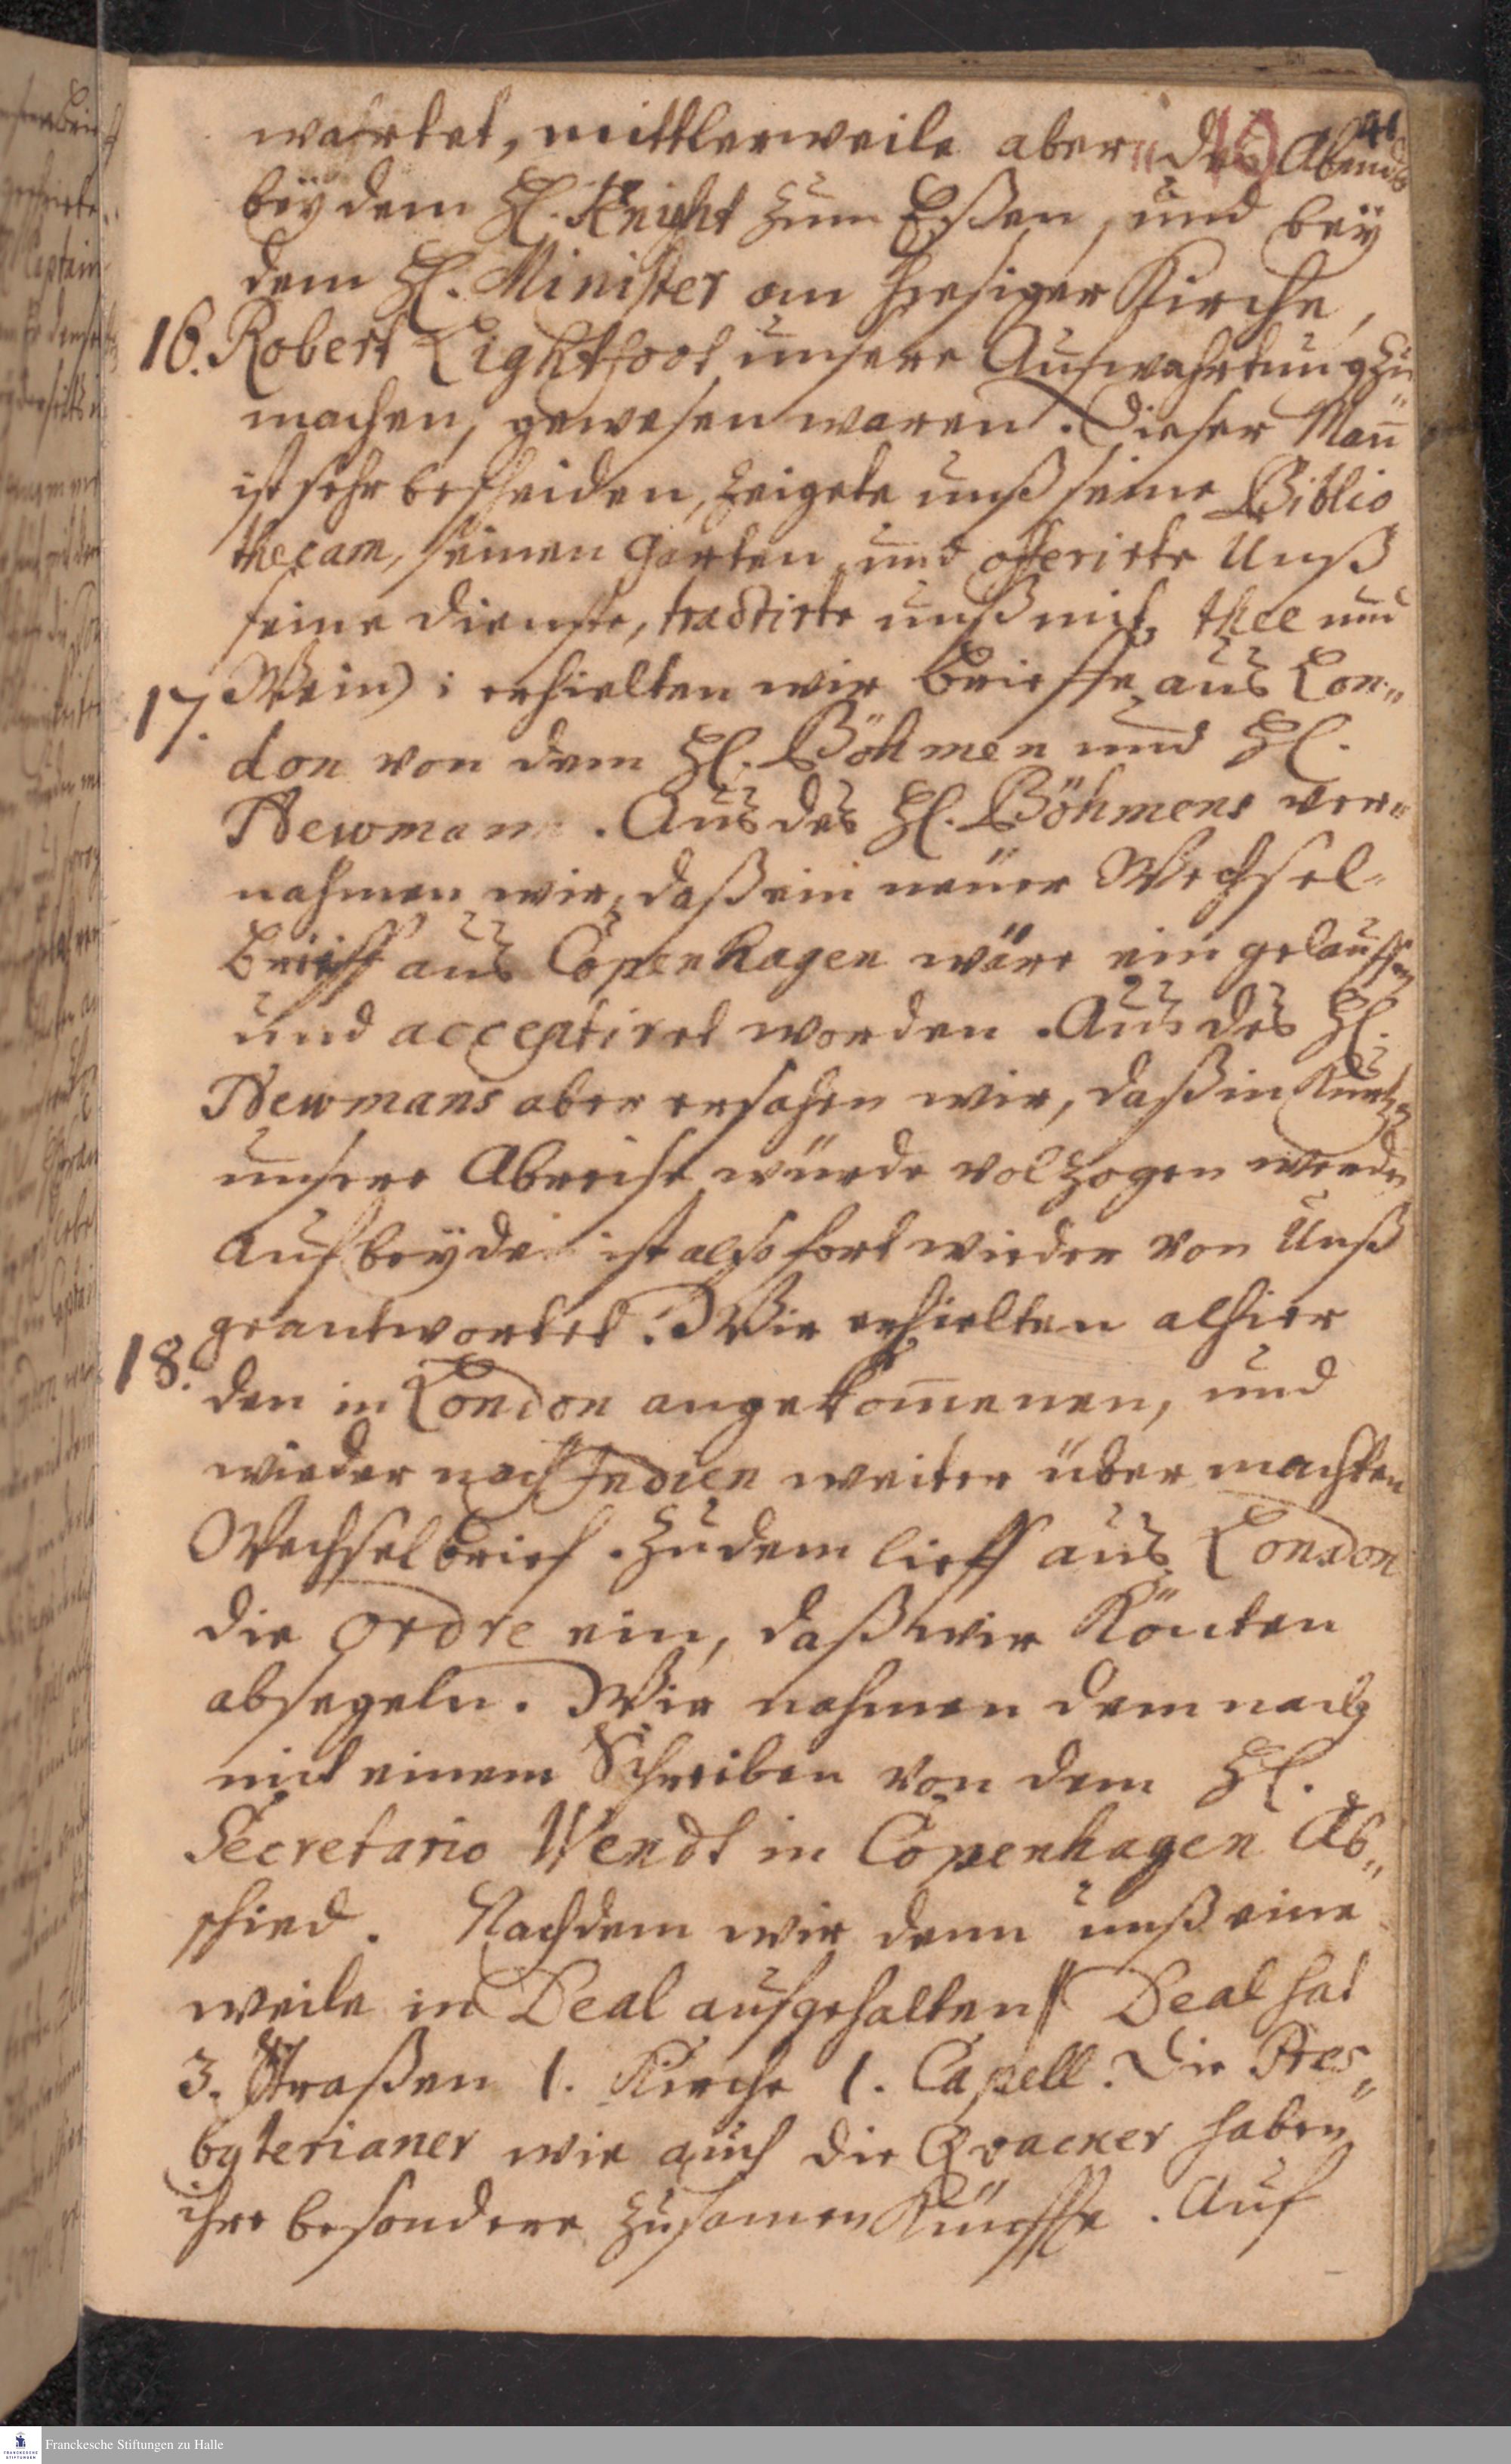 41
10
wartet, mittlerweile aber des Abends
bëy dem H. Knight zum Eßen, und bëy
dem H. Minister an hiesiger Kirche,
16. Robert Lightfoot unsere Aufwahrtung zu
machen, gewesen waren. Dieser Mañ
ist sehr bescheiden, zeigete unß seine Biblio
thecam, seinen Garten und offerirte Unß
seine Dienste, tractirte unß mit thee und
17. Wein) : erhielten wir Brieffe aus Lon„
don von dem H. Böhmen und H.
Newmann. Aus des H. Böhmens ver„
nahmen wir, daß ein neuer Wechsel-
Brieff aus Copenhagen wäre ein gelauffen
und acceptiret worden. Aus des H.
Newmans aber ersahen wir, daß in Kurtzen
unsere Abreise würde volzogen werden
auf beÿde ist also fort wieder von Unß
geantwortet. Wir erhielten alhier
18. den in London angekom̅enen, und
wieder nach Indien weiter über machten
Wechselbrief. Zudem lieff aus London
die ordre ein, daß wir Könten
absegeln. Wir nahmen dem nach
mit einem Schreiben von dem H.
Secretario Wendt in Copenhagen Ab„
schied. Nachdem wir denn unß eine
weile in Deal aufgehalten // Deal hat
3. Straßen 1. Kirche 1. Capell. Die Pres„
byterianer wie auch die Qvacker haben
ihre besondere Zusamen Künffte. Auf
Franckesche Stiftungen zu Halle